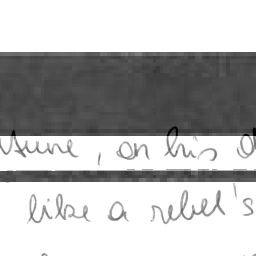 on his
like a rebel's